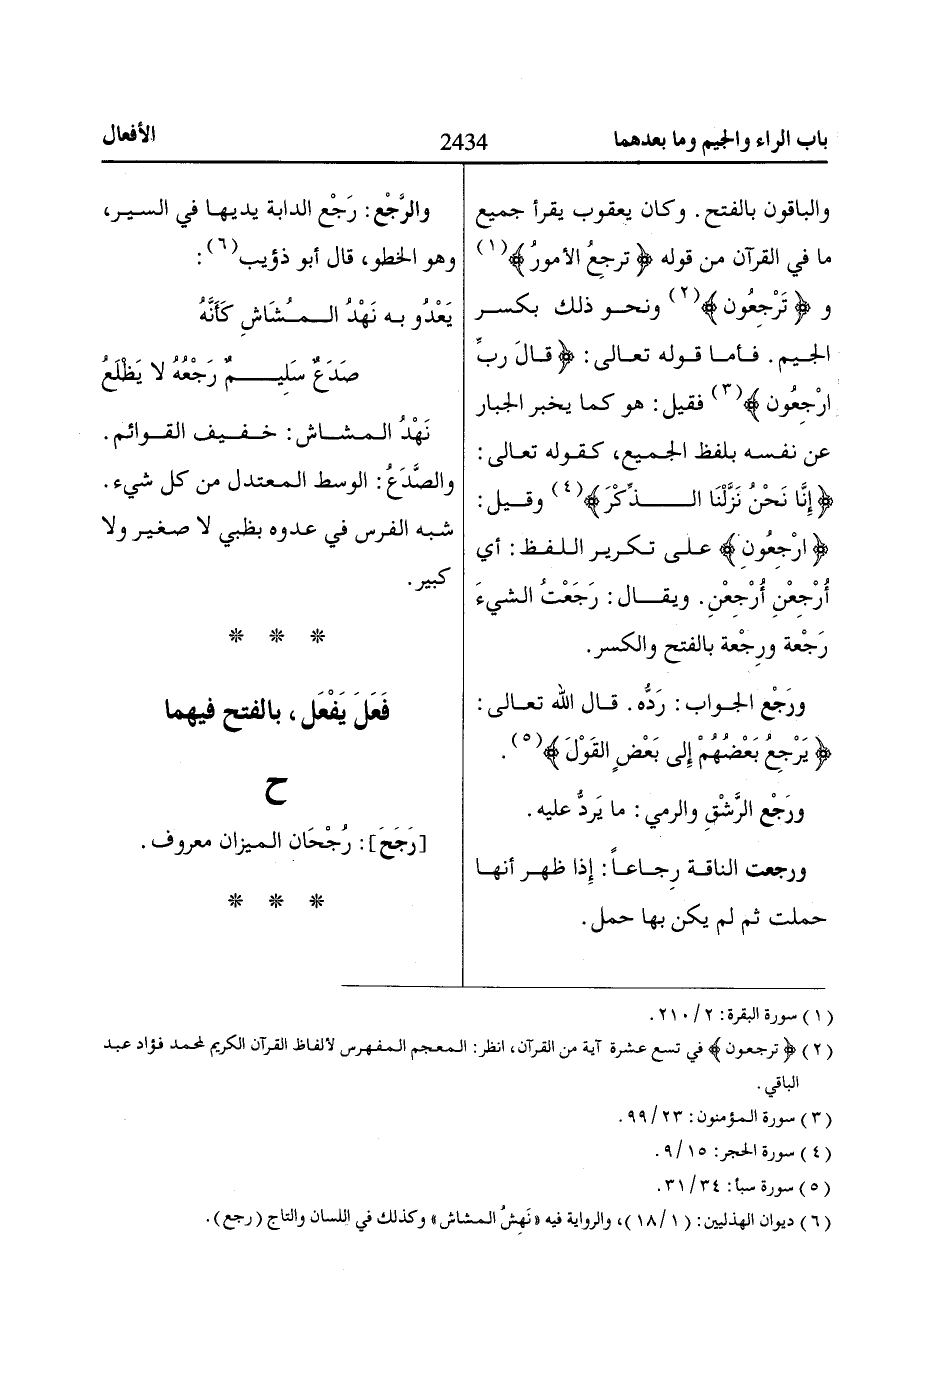 باب الراء والجيم وما بعدهما
2434
الأفعال
والباقون بالفتح. وكان يعقوب يقرأ جميع
ما في القرآن من قوله ﴿ ترجعُ الأمورُ ﴾(١)
و ﴿ تَرْجعُون ﴾(٢) ونحو ذلك بكسر
الجيم. فأما قوله تعالى: ﴿ قالَ ربِّ
ارْجعُون ﴾(٣) فقيل: هو كما يخبر الجبار
عن نفسه بلفظ الجميع، كقوله تعالى:
﴿ إنَّا نَحْنُ نَزَّلْنَا الذِّكْرَ ﴾(٤) وقيل:
﴿ ارْجعُونِ ﴾ على تكرير اللفظ: أي
أُرْجعْنِ أُرْجعْنِ. ويقال: رَجَعْتُ الشيءَ
رَجْعة ورِجْعة بالفتح والكسر.
ورَجْع الجواب: رَدُّه. قال الله تعالى:
﴿ يَرْجِعُ بَعْضُهُمْ إلى بَعْضٍ القَوْلَ ﴾(٥).
ورَجْع الرَّشْقِ والرمي: ما يَردُّ عليه.
ورجعت الناقة رِجاعاً: إذا ظهر أنها
حملت ثم لم يكن بها حمل.
والرَّجْع: رَجْع الدابة يديها في السير،
وهو الخطو، قال أبو ذؤيب(٦):
يَعْدُو به نَهْدُ المُشَاشِ كَأَنَّهُ
صَدَعٌ سَلِيمٌ رَجْعُهُ لا يَظْلَعُ
نَهْدُ المشاش: خفيف القوائم.
والصَّدَعُ: الوسط المعتدل من كل شيء.
شبه الفرس في عدوه بظبي لا صغير ولا
كبير.
* * *
فَعَلَ يَفْعَل، بالفتح فيهما
ح
[رَجَحَ]: رُجْحَان الميزان معروف.
* * *
(١) سورة البقرة: ٢/ ٢١٠.
(٢) ﴿ ترجعون ﴾ في تسع عشرة آية من القرآن، انظر: المعجم المفهرس لألفاظ القرآن الكريم لمحمد فؤاد عبد
الباقي.
(٣) سورة المؤمنون: ٢٣/ ٩٩.
(٤) سورة الحجر: ١٥/ ٩.
(٥) سورة سبأ: ٣٤/ ٣١.
(٦) ديوان الهذليين: (١/ ١٨)، والرواية فيه «نَهِشُ المشاش» وكذلك في اللسان والتاج (رجع).